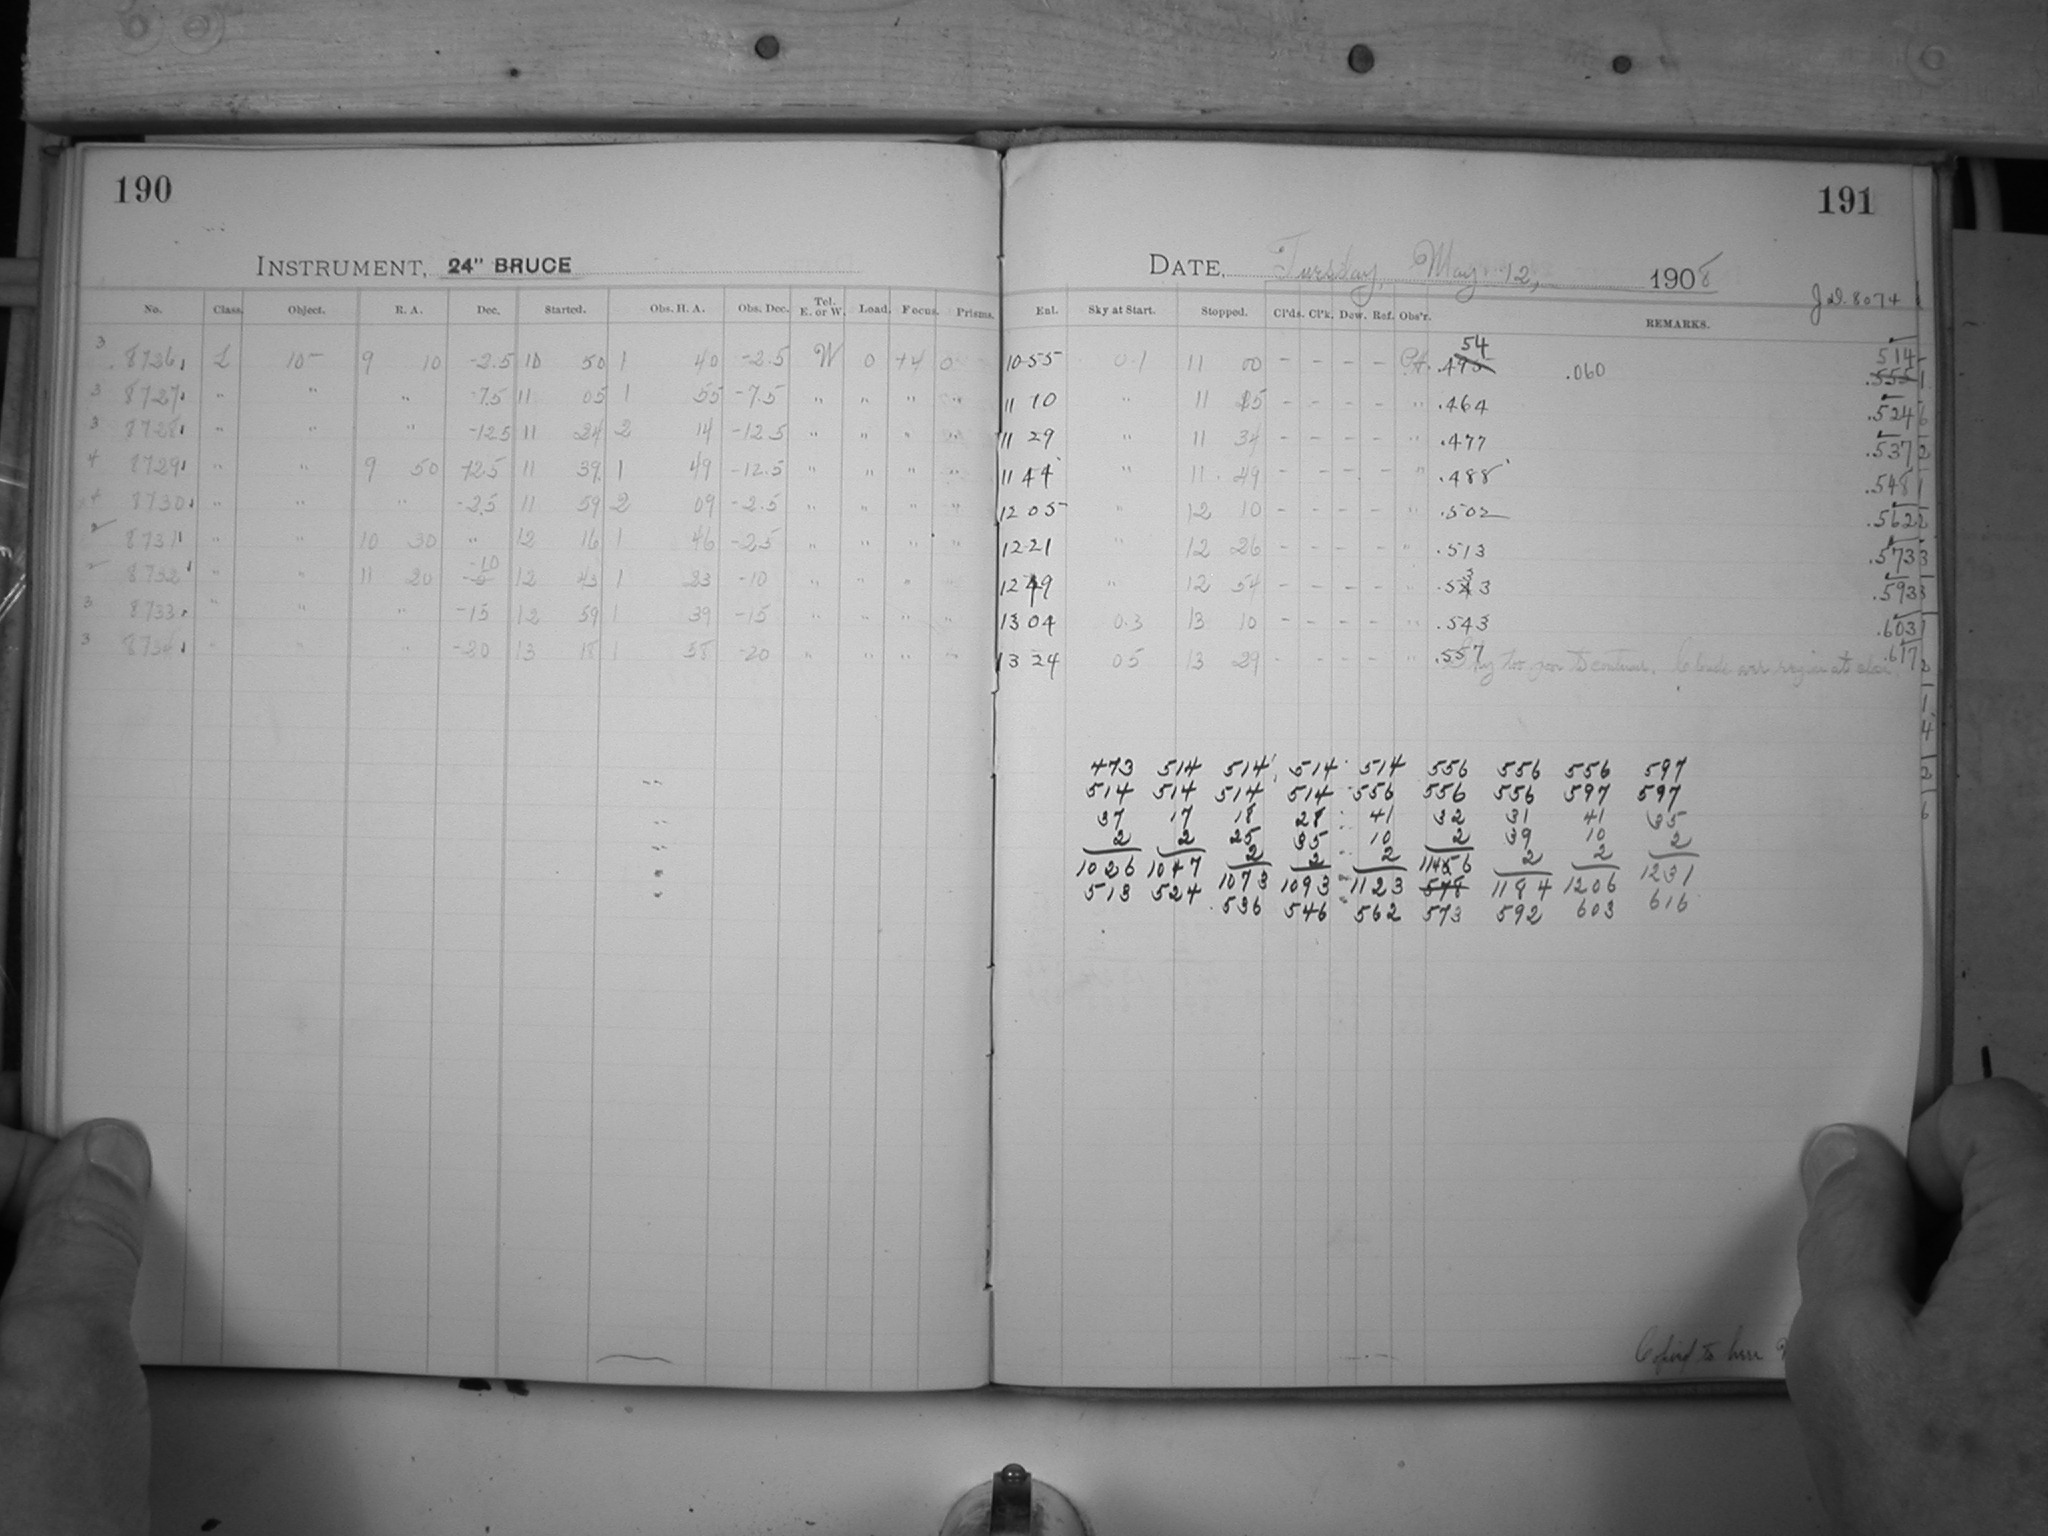 190
INSTRUMENT, 24" BRUCE
No. Class. Object. R. A. Dec. Started. Obs. H. A. Obs. Dec. Tel. E. or W. Load. Focus. Prisms.
3 8726 L 10- 9 10 -2.5 10 50 1 40 -2.5 W 0 +4 0
3 8727 " " " -7.5 11 05 1 55 -7.5 " " " "
3 8728 " " " -12.5 11 24 2 14 -12.5 " " " "
4 8729 " " 9 50 -12.5 11 39 1 49 -12.5 " " " "
4 8730 " " " -2.5 11 59 2 09 -2.5 " " " "
2 8731 " " 10 30 " 12 16 1 46 -2.5 " " " "
8732 " " 11 20 -10 12 43 1 23 -10 " " " "
3 8733 " " " -15 12 59 1 39 -15 " " " "
3 8734 " " " -20 13 18 1 58 -20 " " " "
191
DATE, Tuesday, May 12, 1908
J.D. 8074
Enl. Sky at Start. Stopped. Cl'ds. Cl'k. Dew. Ref. Obs'r. REMARKS.
54 514
10 55 0.1 11 00 - - - - .495 .060 .555
11 10 " 11 15 - - - - " .464 .524
11 29 " 11 34 - - - - " .477 .537
11 44 " 11 49 - - - - " .488 .548
12 05 " 12 10 - - - - " .502 .562
12 21 " 12 26 - - - - " .513 .573
12 49 " 12 54 - - - - " .533 .593
13 04 0.3 13 10 - - - - " .543 .603
13 24 05 13 29 - - - - " .557 Sky too poor to continue. Clouds over region at close .617
473 514 514 514 514 556 556 556 597
514 514 514 514 556 556 556 597 597
37 17 18 28 41 32 31 41 35
2 2 25 35 10 2 39 10 2
1026 1047 2 2 2 1146 2 2 1231
513 524 1073 1093 1123 578 1184 1206 616
536 546 562 573 592 603
Copied to here